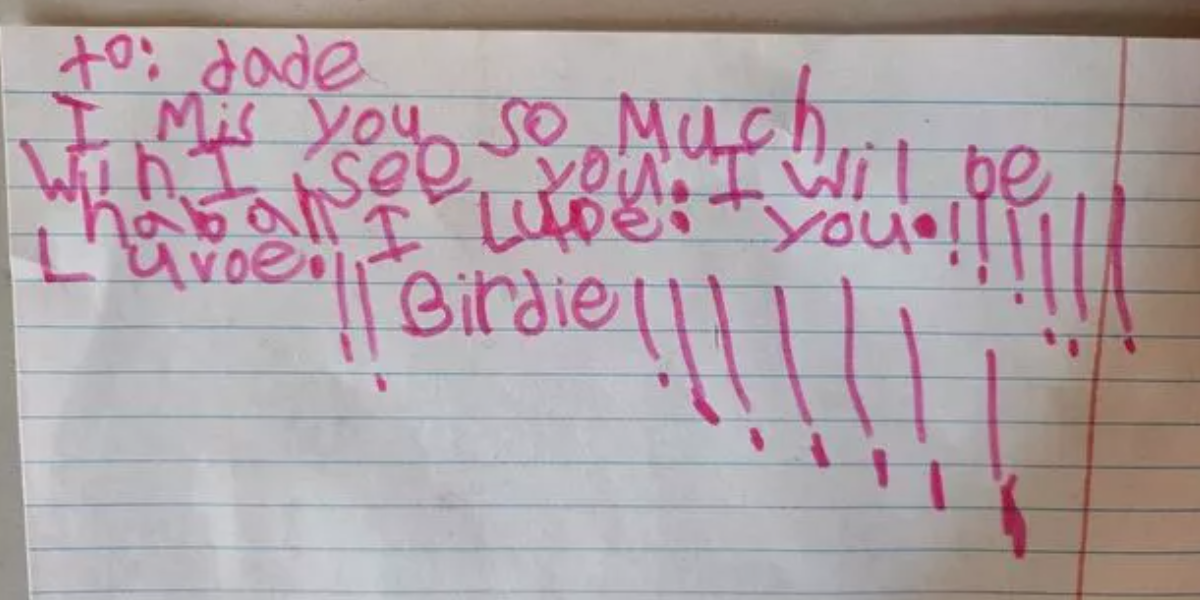 to: dade
I Mis you so Much
Win I see you. I wil be
habah I Luve. you.!!!!!!
Luvoe.!! Birdie!!!!!!!